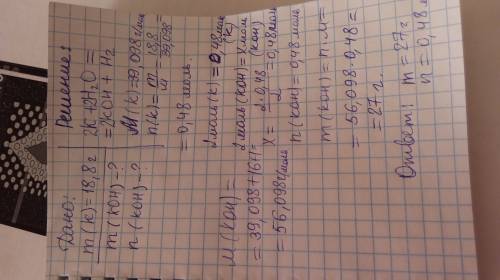 Дано:
m(K)=18,8 г
m(KOH)-?
n(KOH)-?
Решение:
2K+2H₂O=
=2KOH+H₂
M(K)=39,098 г/моль
n(K)=m/M=18,8/39,098
=0,48 моль.
M(KOH)=
=39,098+16+1=
=56,098 г/моль
2 моль(K)=0,48 моль (K)
2 моль(KOH)=X моль (KOH)
X=2·0,48/2=0,48 моль
n(KOH)=0,48 моль
m(KOH)=n·M=
=56,098·0,48=
=27 г.
Ответ: m=27 г.
n=0,48 м